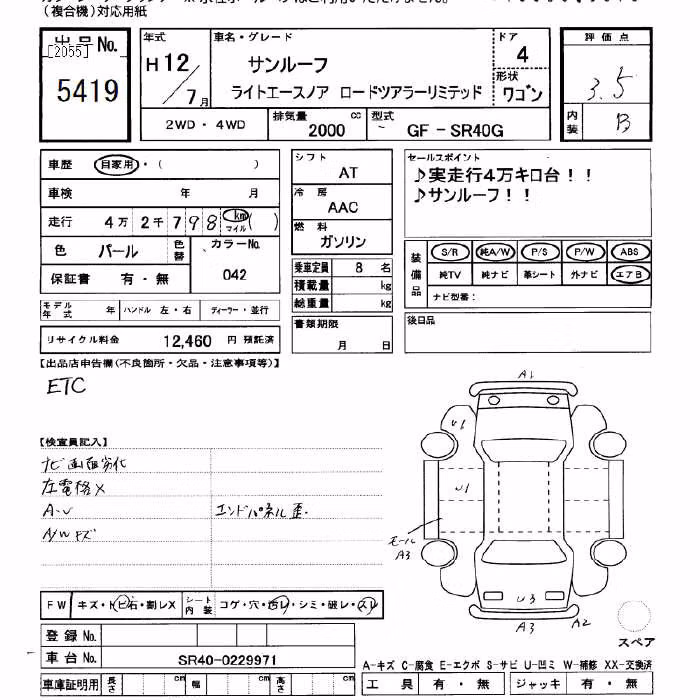 (複合機)対応用紙
出品No.
[2055]
5419
年式
H12/7月
車名・グレード
サンルーフ
ライトエースノア ロードツアラーリミテッド
ドア
4
形状
ワゴン
評価点
3.5
内装
B
2WD・4WD
排気量
2000
cc
型式
GF-SR40G
車歴 自家用・( )
車検 年 月
走行 4万 2千 798 km マイル ( )
色 パール 色替
カラーNo.
042
保証書 有・無
モデル年式 年 ハンドル 左・右 ディーラー・並行
リサイクル料金 12,460 円 預託済
シフト
AT
冷房
AAC
燃料
ガソリン
乗車定員 8 名
積載量 kg
総重量 kg
書類期限
月 日
セールスポイント
♪実走行4万キロ台!!
♪サンルーフ!!
装備品
S/R 純A/W P/S P/W ABS
純TV 純ナビ 革シート 外ナビ エアB
ナビ型番:
後日品
【出品店申告欄(不良箇所・欠品・注意事項等)】
ETC
【検査員記入】
ナビ画面劣化
左電格X
A-U
エンドパネル歪.
A/Wキズ
FW キズ・トビ石・割レX
シート内装 コゲ・穴・汚レ・シミ・破レ・スレ
登録No.
車台No. SR40-0229971
車庫証明用 長さ cm 幅 cm 高さ cm
A1
U1
U1
モール
A3
U3
A3
A2
スペア
A-キズ C-腐食 E-エクボ S-サビ U-凹ミ W-補修 XX-交換済
工具 有・無 ジャッキ 有・無